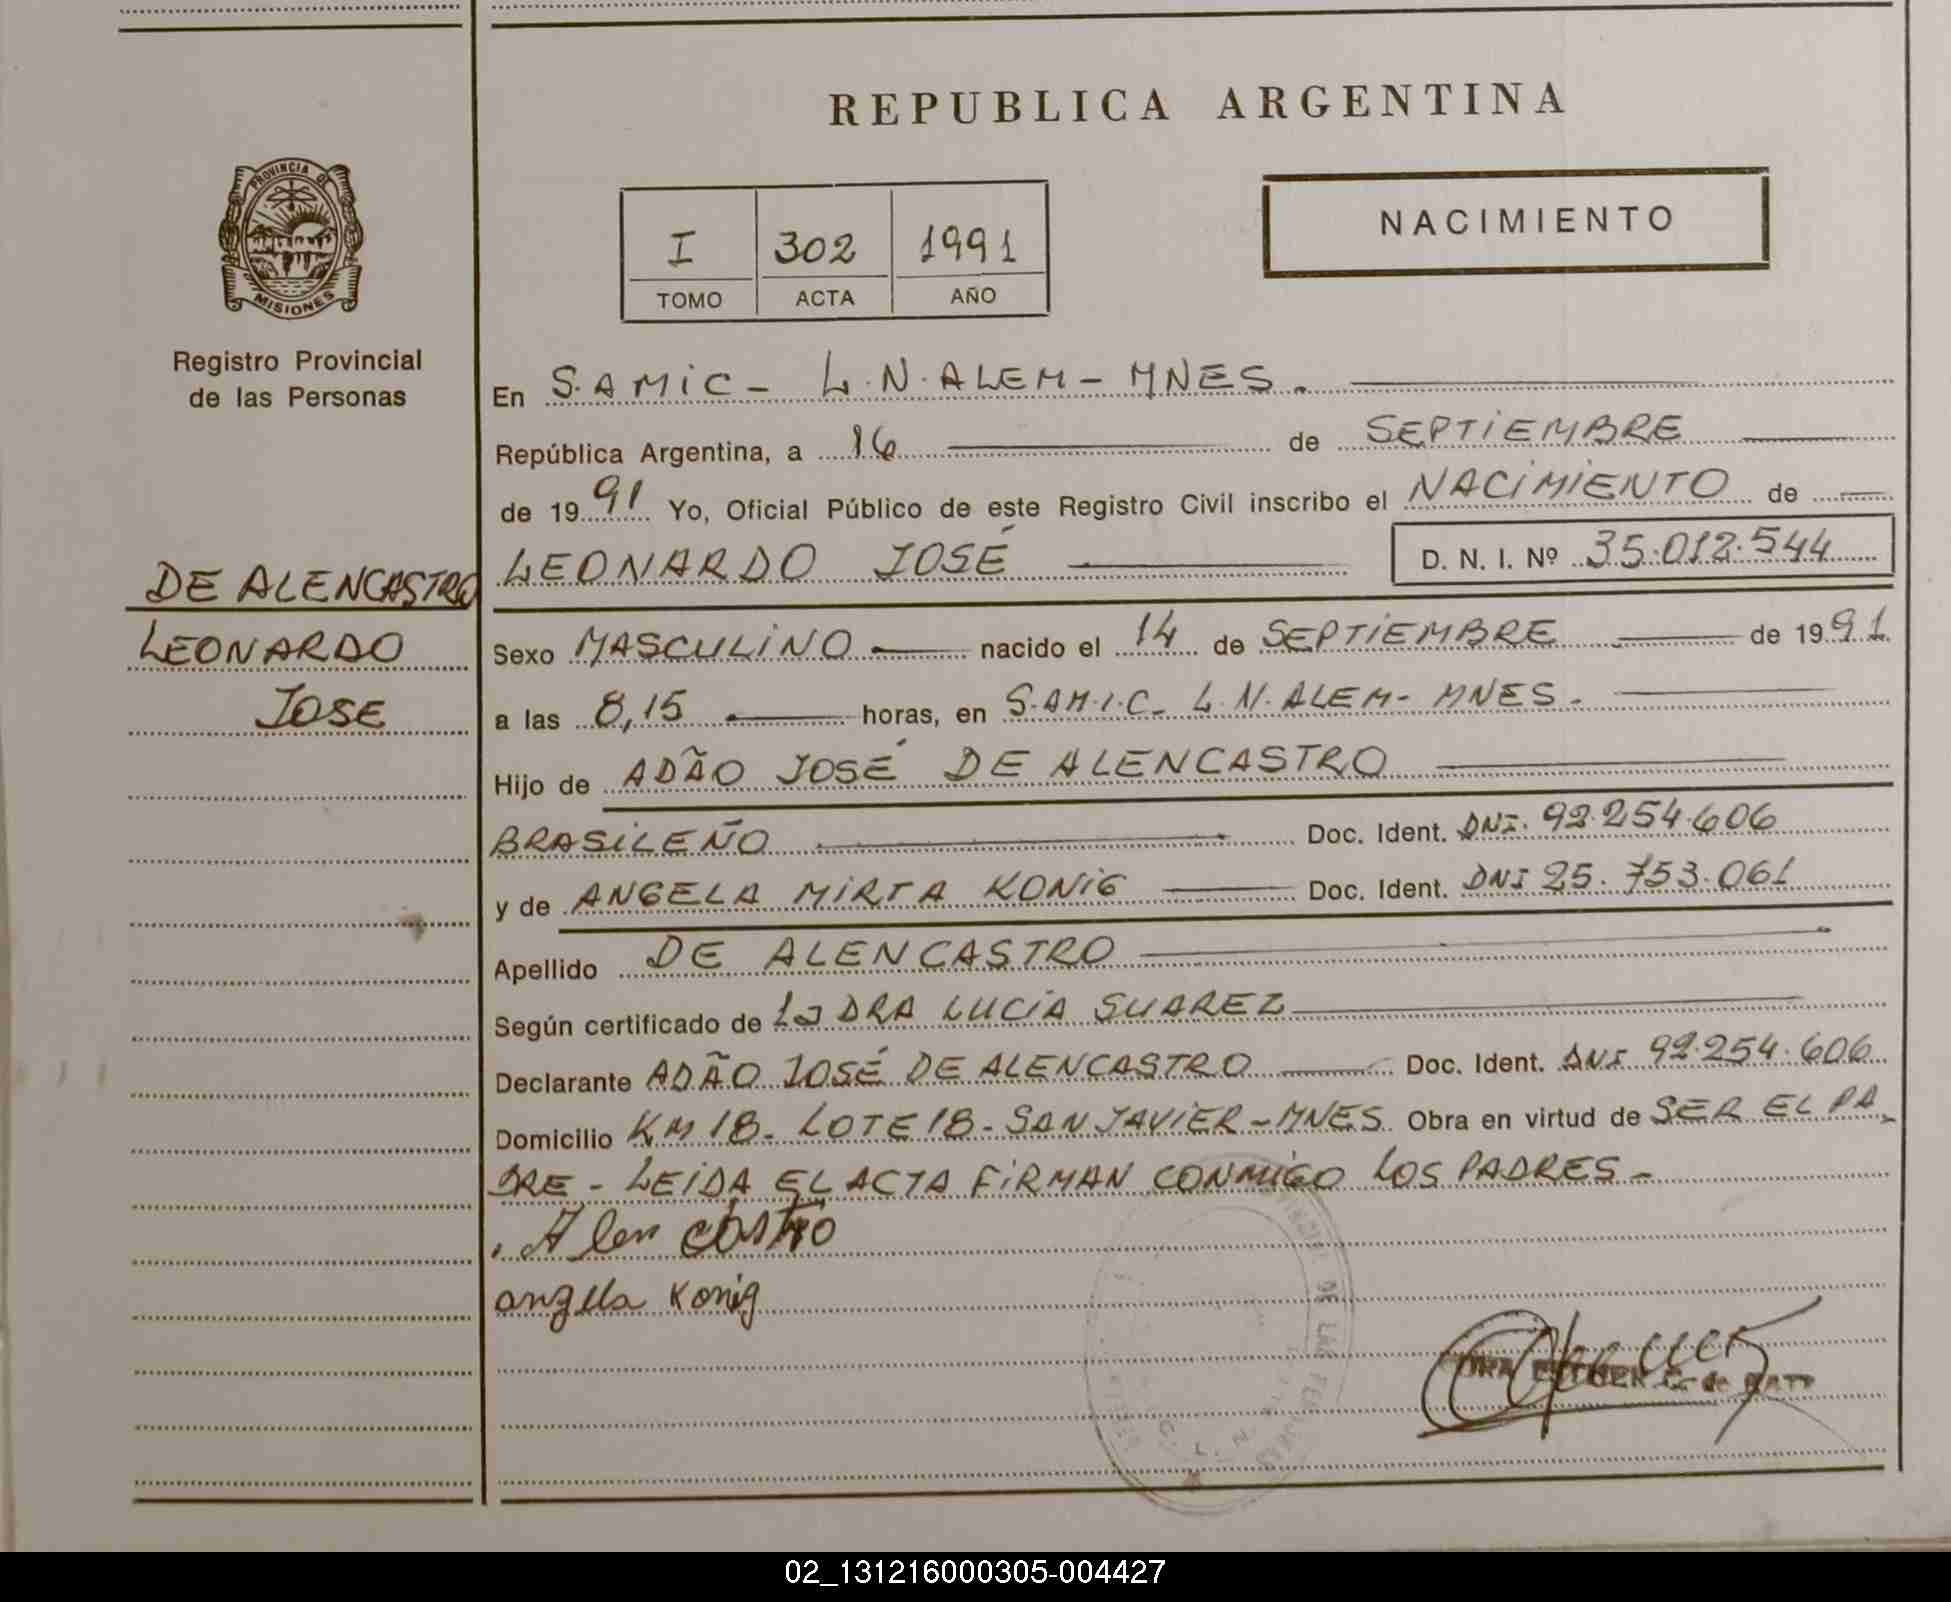 REPUBLICA ARGENTINA
PROVINCIA DE
MISIONES
Registro Provincial
de las Personas
I 302 1991
TOMO ACTA AÑO
NACIMIENTO
En S.AMIC- L.N.ALEM-MNES.
República Argentina, a 16 de SEPTIEMBRE
de 1991 Yo, Oficial Público de este Registro Civil inscribo el NACIMIENTO de
LEONARDO JOSÉ D. N. I. Nº 35.012.544
DE ALENCASTRO
LEONARDO
JOSE
Sexo MASCULINO nacido el 14 de SEPTIEMBRE de 1991
a las 8,15 horas, en S.AM.I.C- L.N.ALEM- MNES.
Hijo de ADÃO JOSÉ DE ALENCASTRO
BRASILEÑO Doc. Ident. DNI. 92.254.606
y de ANGELA MIRTA KONIG Doc. Ident. DNI 25.753.061
Apellido DE ALENCASTRO
Según certificado de la DRA LUCIA SUAREZ
Declarante ADÃO JOSÉ DE ALENCASTRO Doc. Ident. DNI 92.254.606
Domicilio KM 18- LOTE 18- SAN JAVIER-MNES Obra en virtud de SER EL PA-
DRE - LEIDA EL ACTA FIRMAN CONMIGO LOS PADRES-
Alencastro
angela Konig
DE LAS
02_131216000305-004427